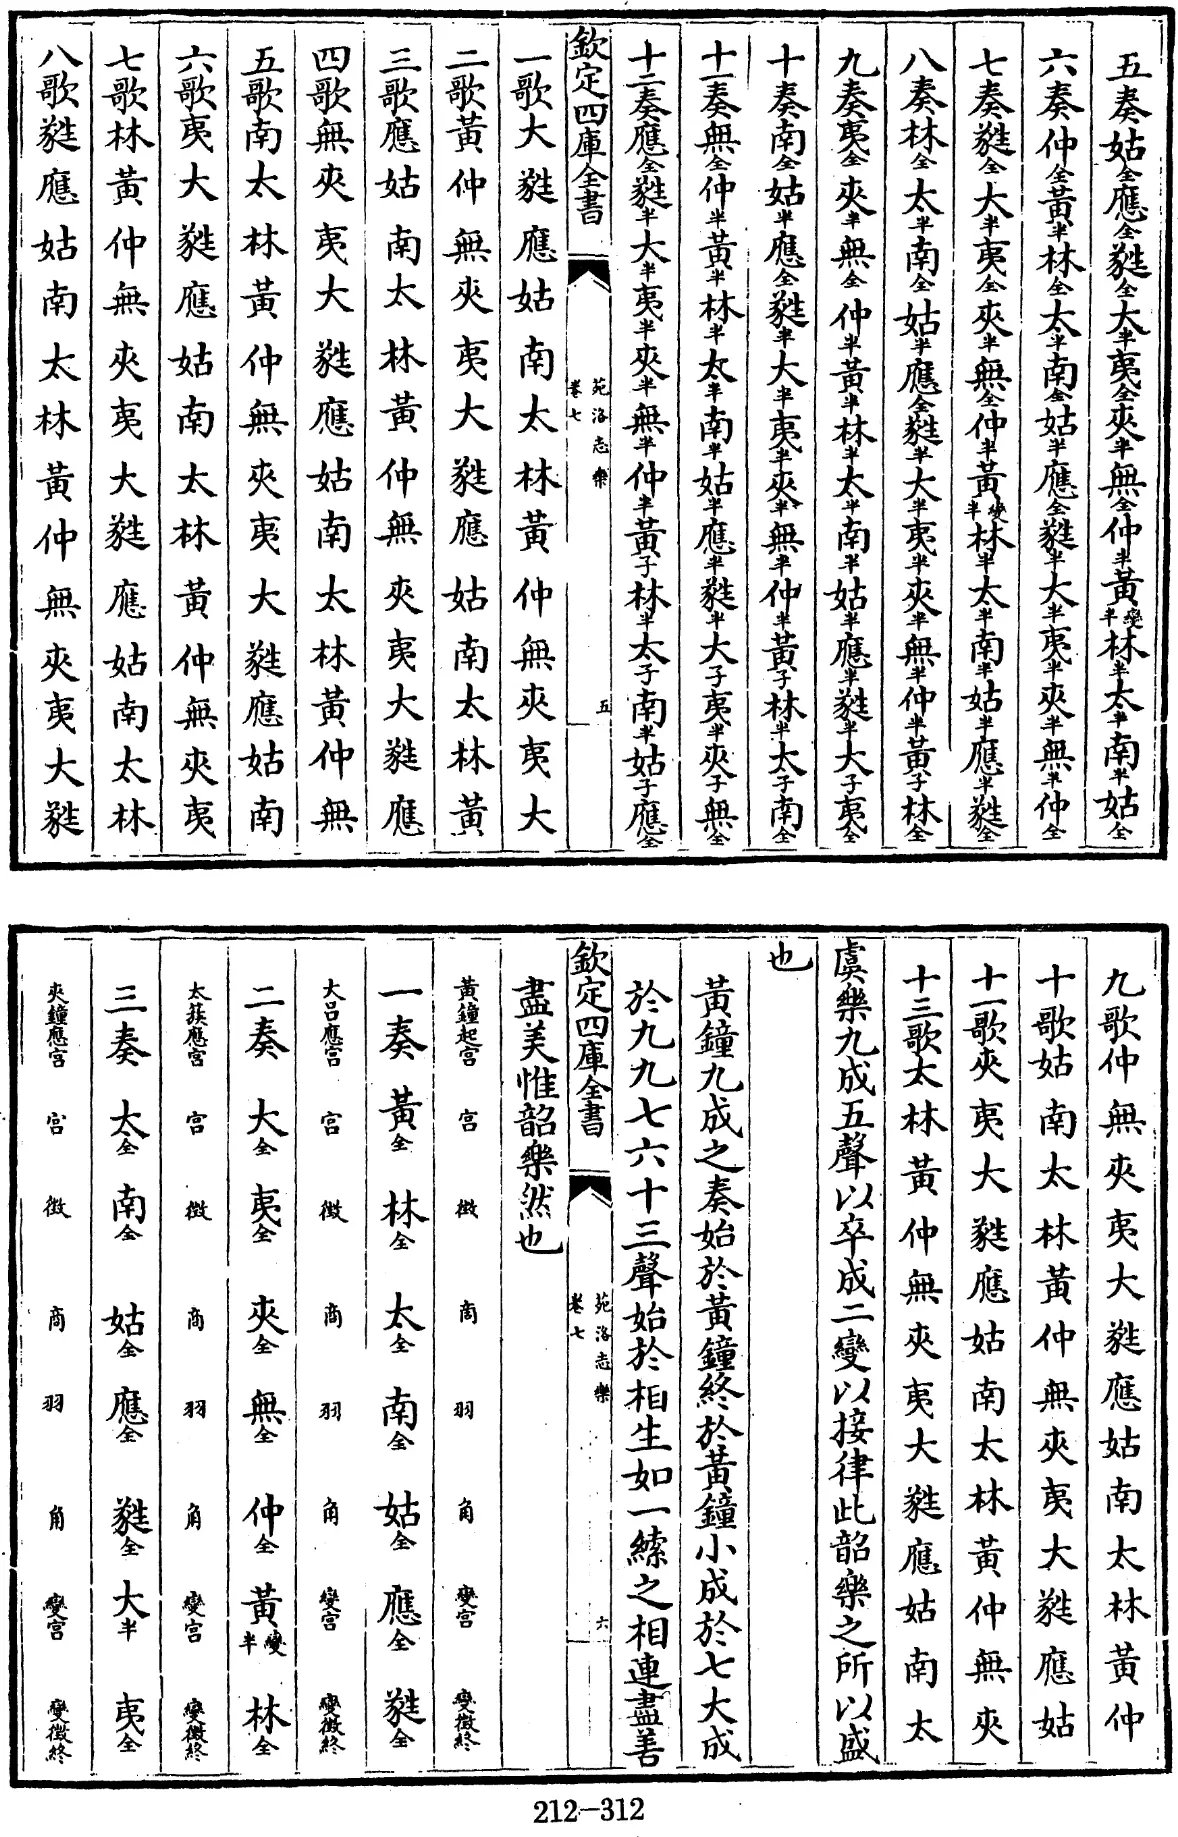 五奏姑全應全蕤全大半夷全夾半無全仲半黃變半林半太半南半姑全
六奏仲全黃半林全太半南全姑半應全蕤半大半夷半夾半無半仲全
七奏蕤全大半夷全夾半無全仲半黃變半林半太半南半姑半應半蕤全
八奏林全太半南全姑半應全蕤半大半夷半夾半無半仲半黃子林全
九奏夷全夾半無全仲半黃半林半太半南半姑半應半蕤半大子夷全
十奏南全姑半應全蕤半大半夷半夾半無半仲半黃子林半太子南全
十一奏無全仲半黃半林半太半南半姑半應半蕤半大子夷半夾子無全
十二奏應全蕤半大半夷半夾半無半仲半黃子林半太子南半姑子應全
欽定四庫全書
苑洛志樂
卷七
五
一歌大蕤應姑南太林黃仲無夾夷大
二歌黃仲無夾夷大蕤應姑南太林黃
三歌應姑南太林黃仲無夾夷大蕤應
四歌無夾夷大蕤應姑南太林黃仲無
五歌南太林黃仲無夾夷大蕤應姑南
六歌夷大蕤應姑南太林黃仲無夾夷
七歌林黃仲無夾夷大蕤應姑南太林
八歌蕤應姑南太林黃仲無夾夷大蕤
九歌仲無夾夷大蕤應姑南太林黃仲
十歌姑南太林黃仲無夾夷大蕤應姑
十一歌夾夷大蕤應姑南太林黃仲無夾
十三歌太林黃仲無夾夷大蕤應姑南太
虞樂九成五聲以卒成二變以接律此韶樂之所以盛
也
黃鐘九成之奏始於黃鐘終於黃鐘小成於七大成
於九九七六十三聲始於相生如一縤之相連盡善
欽定四庫全書
苑洛志樂
卷七
六
盡美惟韶樂然也
黃鐘起宮 宮 徵 商 羽 角 變宮 變徵終
一奏 黃全 林全 太全 南全 姑全 應全 蕤全
大呂應宮 宮 徵 商 羽 角 變宮 變徵終
二奏 大全 夷全 夾全 無全 仲全 黃變半 林全
太簇應宮 宮 徵 商 羽 角 變宮 變徵終
三奏 太全 南全 姑全 應全 蕤全 大半 夷全
夾鐘應宮 宮 徵 商 羽 角 變宮 變徵終
212-312